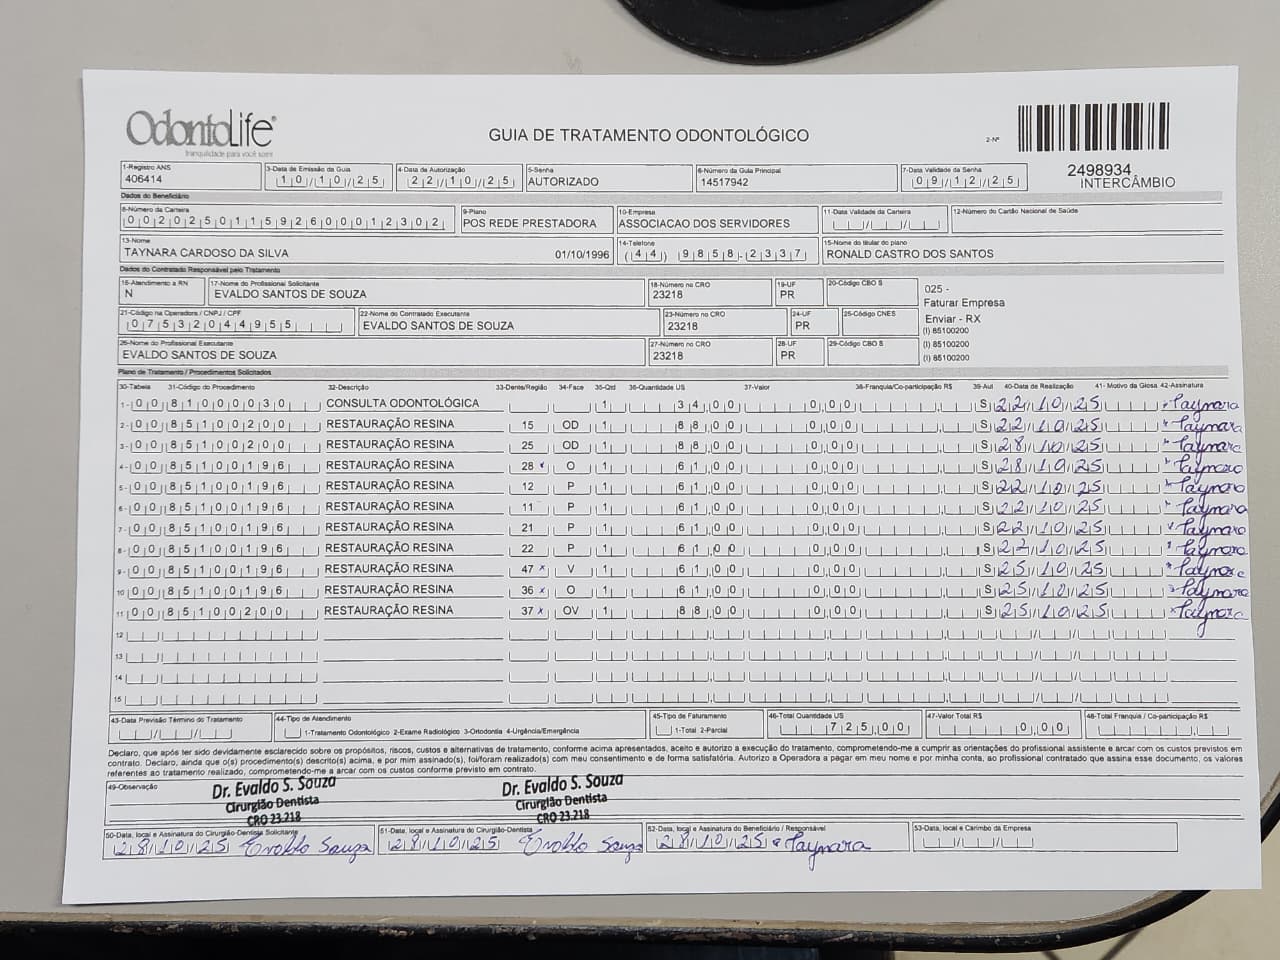 OdontoLife®
tranquilidade para você sorrir
GUIA DE TRATAMENTO ODONTOLÓGICO
2-Nº
2498934
INTERCÂMBIO
1-Registro ANS 3-Data de Emissão da Guia 4-Data de Autorização 5-Senha 6-Número da Guia Principal 7-Data Validade da Senha
406414 10/10/25 22/10/25 AUTORIZADO 14517942 09/12/25
Dados do Beneficiário
8-Número da Carteira 9-Plano 10-Empresa 11-Data Validade da Carteira 12-Número do Cartão Nacional de Saúde
002025011592600012302 POS REDE PRESTADORA ASSOCIACAO DOS SERVIDORES
13-Nome 14-Telefone 15-Nome do titular do plano
TAYNARA CARDOSO DA SILVA 01/10/1996 (44) 9858-2337 RONALD CASTRO DOS SANTOS
Dados do Contratado Responsável pelo Tratamento
16-Atendimento a RN 17-Nome do Profissional Solicitante 18-Número no CRO 19-UF 20-Código CBO S
N EVALDO SANTOS DE SOUZA 23218 PR
025 -
Faturar Empresa
Enviar - RX
(I) 85100200
(I) 85100200
(I) 85100200
21-Código na Operadora / CNPJ / CPF 22-Nome do Contratado Executante 23-Número no CRO 24-UF 25-Código CNES
07532044955 EVALDO SANTOS DE SOUZA 23218 PR
26-Nome do Profissional Executante 27-Número no CRO 28-UF 29-Código CBO S
EVALDO SANTOS DE SOUZA 23218 PR
Plano de Tratamento / Procedimentos Solicitados
30-Tabela 31-Código do Procedimento 32-Descrição 33-Dente/Região 34-Face 35-Qtd 36-Quantidade US 37-Valor 38-Franquia/Co-participação R$ 39-Aut 40-Data de Realização 41- Motivo da Glosa 42-Assinatura
1- 00 81000030 CONSULTA ODONTOLÓGICA 1 34,00 0,00 S 22/10/25 Taynara
2- 00 85100200 RESTAURAÇÃO RESINA 15 OD 1 88,00 0,00 S 22/10/25 Taynara
3- 00 85100200 RESTAURAÇÃO RESINA 25 OD 1 88,00 0,00 S 28/10/25 Taynara
4- 00 85100196 RESTAURAÇÃO RESINA 28 O 1 61,00 0,00 S 28/10/25 Taynara
5- 00 85100196 RESTAURAÇÃO RESINA 12 P 1 61,00 0,00 S 22/10/25 Taynara
6- 00 85100196 RESTAURAÇÃO RESINA 11 P 1 61,00 0,00 S 22/10/25 Taynara
7- 00 85100196 RESTAURAÇÃO RESINA 21 P 1 61,00 0,00 S 22/10/25 Taynara
8- 00 85100196 RESTAURAÇÃO RESINA 22 P 1 61,00 0,00 S 22/10/25 Taynara
9- 00 85100196 RESTAURAÇÃO RESINA 47 x V 1 61,00 0,00 S 25/10/25 Taynara
10- 00 85100196 RESTAURAÇÃO RESINA 36 x O 1 61,00 0,00 S 25/10/25 Taynara
11- 00 85100200 RESTAURAÇÃO RESINA 37 x OV 1 88,00 0,00 S 25/10/25 Taynara
12
13
14
15
43-Data Previsão Término do Tratamento 44-Tipo de Atendimento 45-Tipo de Faturamento 46-Total Quantidade US 47-Valor Total R$ 48-Total Franquia / Co-participação R$
1-Tratamento Odontológico 2-Exame Radiológico 3-Ortodontia 4-Urgência/Emergência 1-Total 2-Parcial 725,00 0,00
Declaro, que após ter sido devidamente esclarecido sobre os propósitos, riscos, custos e alternativas de tratamento, conforme acima apresentados, aceito e autorizo a execução do tratamento, comprometendo-me a cumprir as orientações do profissional assistente e arcar com os custos previstos em
contrato. Declaro, ainda que o(s) procedimento(s) descrito(s) acima, e por mim assinado(s), foi/foram realizado(s) com meu consentimento e de forma satisfatória. Autorizo a Operadora a pagar em meu nome e por minha conta, ao profissional contratado que assina esse documento, os valores
referentes ao tratamento realizado, comprometendo-me a arcar com os custos conforme previsto em contrato.
49-Observação
Dr. Evaldo S. Souza Dr. Evaldo S. Souza
Cirurgião Dentista Cirurgião Dentista
CRO 23.218 CRO 23.218
50-Data, local e Assinatura do Cirurgião-Dentista Solicitante 51-Data, local e Assinatura do Cirurgião-Dentista 52-Data, local e Assinatura do Beneficiário / Responsável 53-Data, local e Carimbo da Empresa
28/10/25 Evaldo Souza 28/10/25 Evaldo Souza 28/10/25 Taynara